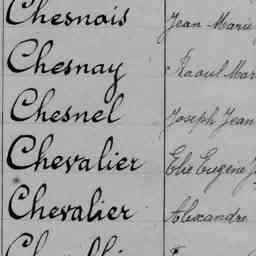 Chesnois Jean Marie
Chesnay Raoul Mar
Chesnel Joseph Jean
Chevalier Elie Eugène J
Chevalier Alexandre